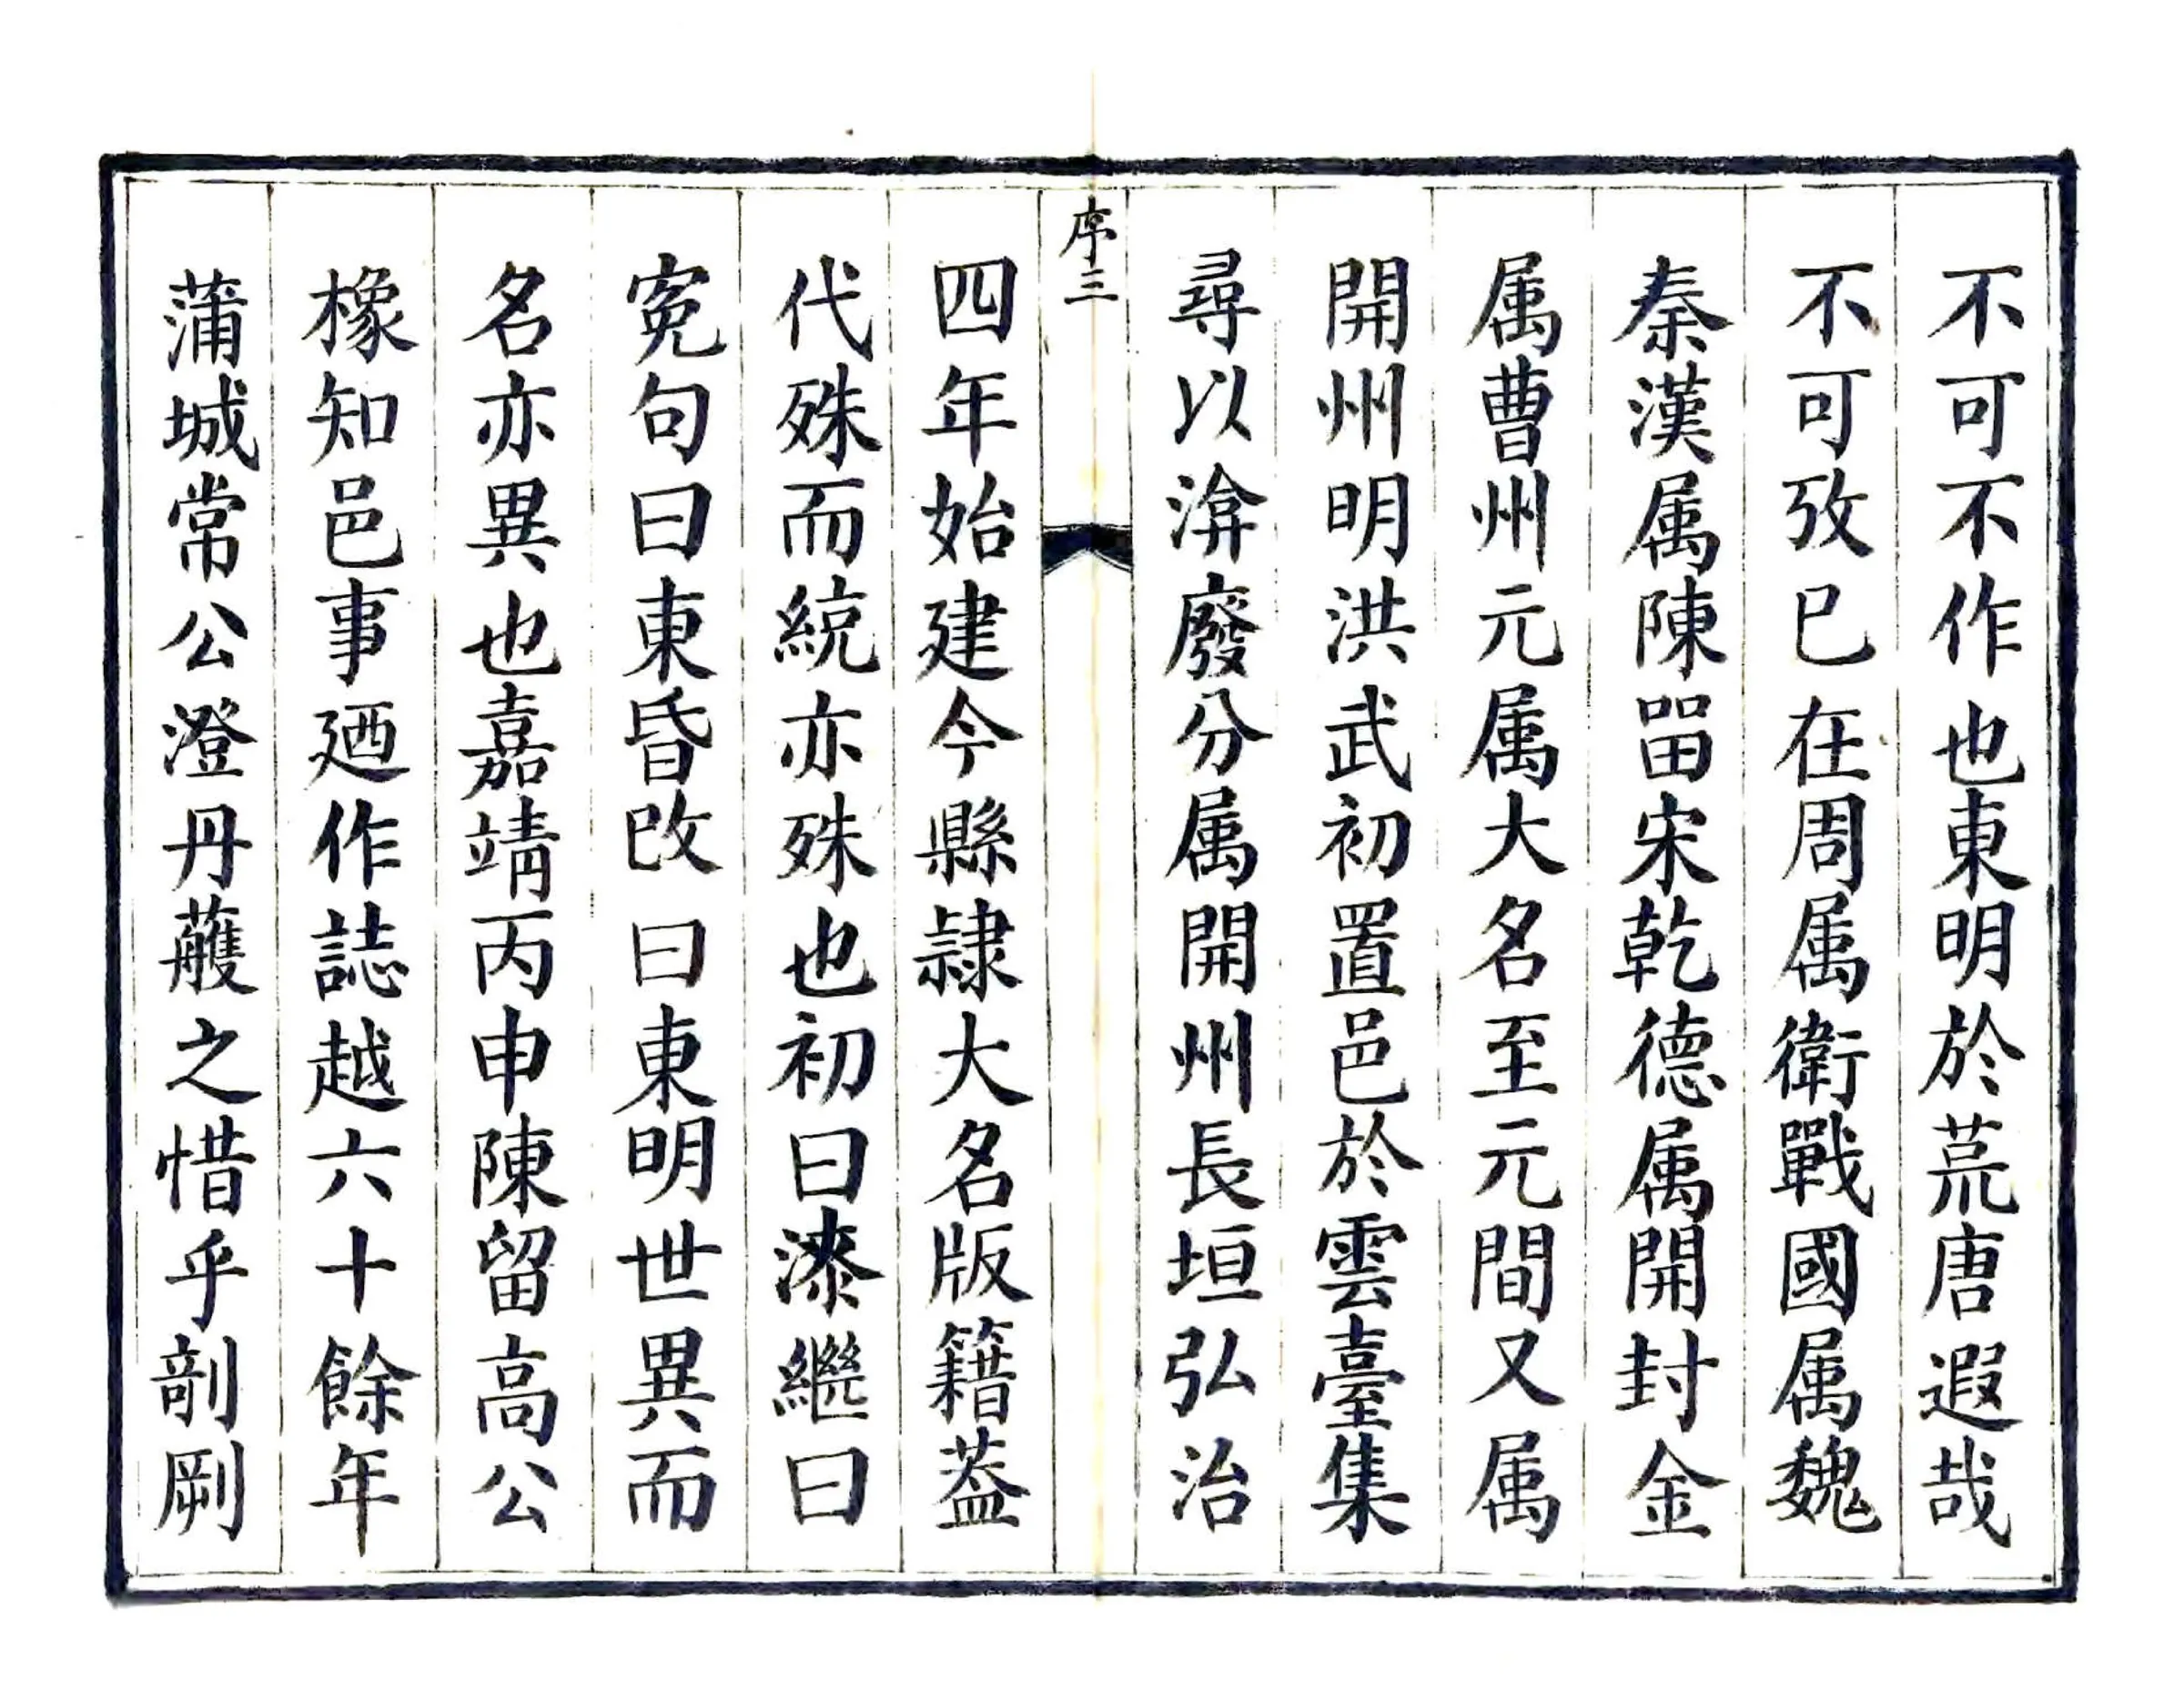 不可不作也東明於荒唐遐哉
不可攷已在周属衛戰國属魏
秦漢属陳留宋乾德属開封金
属曹州元属大名至元間又属
開州明洪武初置邑於雲臺集
尋以渰廢分属開州長垣弘治
序三
四年始建今縣隷大名版籍葢
代殊而統亦殊也初曰漆繼曰
寃句曰東昏改曰東明世異而
名亦異也嘉靖丙申陳留高公
橡知邑事廼作誌越六十餘年
蒲城常公澄丹雘之惜乎剞劂